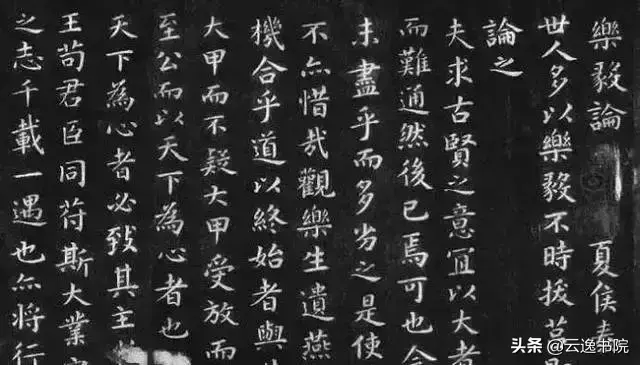 樂毅論 夏侯泰
世人多以樂毅不時拔莒
論之
夫求古賢之意宜以大者
而難通然後已焉可也今
未盡乎而多劣之是使
不亦惜哉觀樂生遺燕
機合乎道以終始者與
大甲而不疑大甲受放而
至公而以天下為心者也
天下為心者必致其主
王苟君臣同符斯大業
之志千載一遇也亦將行
头条 @云逸书院